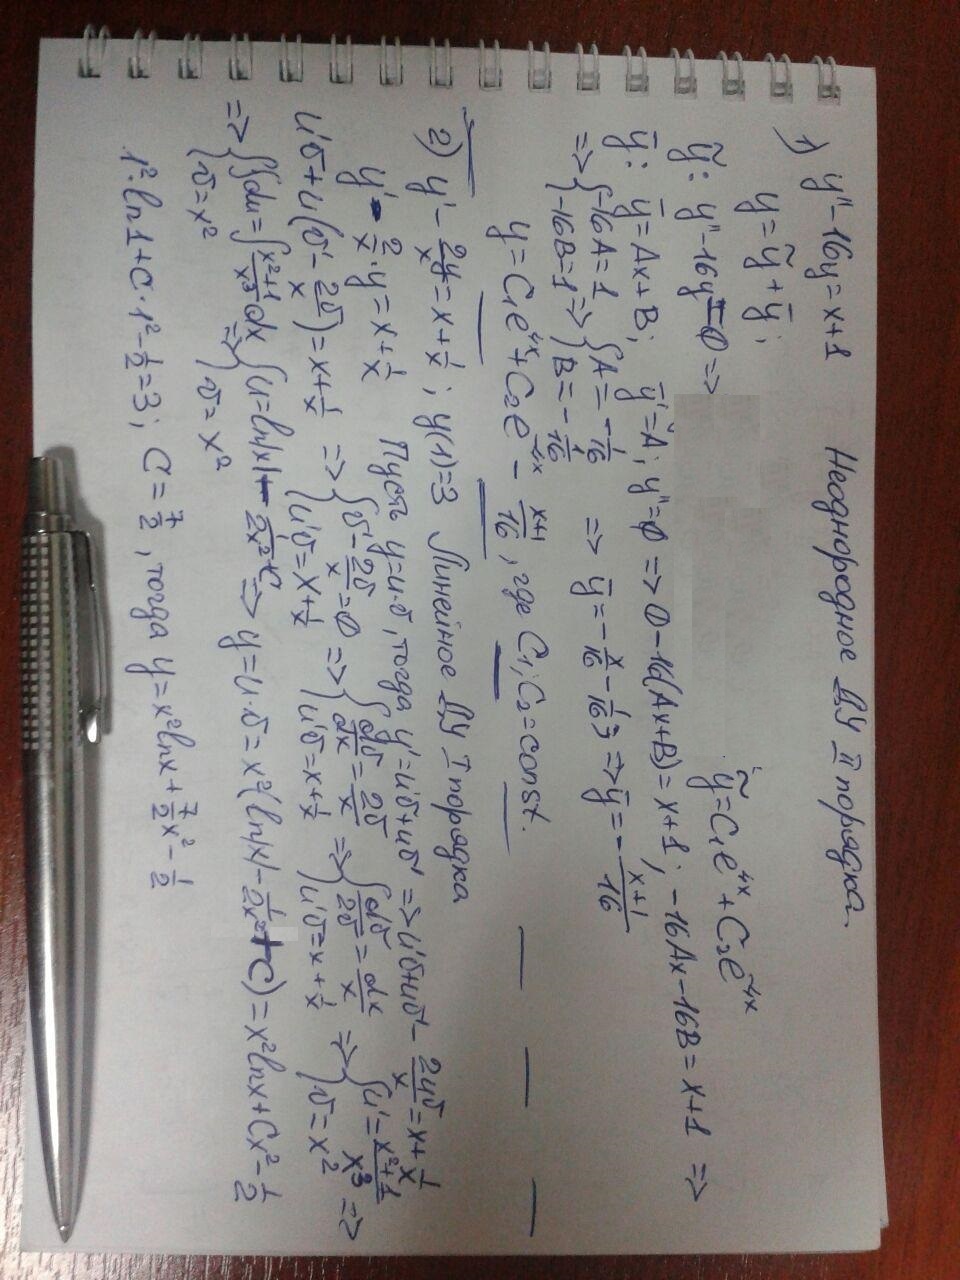 1) y'' - 16y = x + 1 Неоднородное ДУ II порядка
y = ỹ + ȳ;
ỹ: y'' - 16y = 0 => ỹ = C₁e⁴ˣ + C₂e⁻⁴ˣ
ȳ: ȳ = Ax + B; ȳ' = A; ȳ'' = 0 => 0 - 16(Ax + B) = x + 1; -16Ax - 16B = x + 1 =>
=> { -16A = 1, -16B = 1 => { A = -1/16, B = -1/16 => ȳ = -x/16 - 1/16; => ȳ = -(x+1)/16
y = C₁e⁴ˣ + C₂e⁻⁴ˣ - (x+1)/16, где C₁; C₂ = const.
2) y' - 2y/x = x + 1/x; y(1) = 3 Линейное ДУ I порядка
y' - 2/x · y = x + 1/x Пусть y = u·v, тогда y' = u'v + uv' => u'v + uv' - 2uv/x = x + 1/x
u'v + u(v' - 2v/x) = x + 1/x => { v' - 2v/x = 0, u'v = x + 1/x => { dv/dx = 2v/x, u'v = x + 1/x => { dv/2v = dx/x, u'v = x + 1/x => { u' = (x²+1)/x³, v = x² =>
=> { ∫du = ∫(x²+1)/x³ dx, v = x² => { u = ln|x| - 1/2x² + C, v = x² => y = u·v = x²(ln|x| - 1/2x² + C) = x²lnx + Cx² - 1/2
1²·ln1 + C·1² - 1/2 = 3; C = 7/2, тогда y = x²lnx + 7/2 x² - 1/2